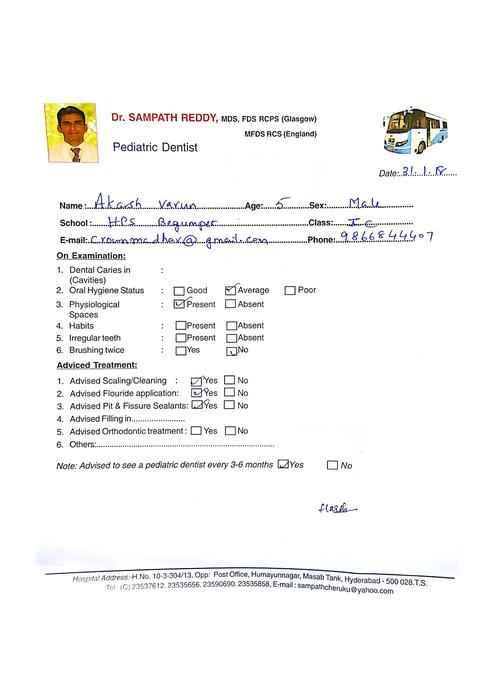 Dr. SAMPATH REDDY, MDS, FDS RCPS (Glasgow)
MFDS RCS (England)
Pediatric Dentist
Date: 31.1.18
Name: Akash Varun Age: 5 Sex: Male
School: HPS Begumpet Class: I C
E-mail: Crownmedhav@gmail.com Phone: 9866844407
On Examination:
1. Dental Caries in :
(Cavities)
2. Oral Hygiene Status : Good Average Poor
3. Physiological : Present Absent
Spaces
4. Habits : Present Absent
5. Irregular teeth : Present Absent
6. Brushing twice : Yes No
Adviced Treatment:
1. Advised Scaling/Cleaning : Yes No
2. Advised Flouride application: Yes No
3. Advised Pit & Fissure Sealants: Yes No
4. Advised Filling in
5. Advised Orthodontic treatment : Yes No
6. Others:
Note: Advised to see a pediatric dentist every 3-6 months Yes No
Hospital Address:-H.No. 10-3-304/13, Opp: Post Office, Humayunnagar, Masab Tank, Hyderabad - 500 028.T.S.
Tel : (C) 23537612, 23535656, 23590690, 23535858, E-mail : sampathcheruku@yahoo.com